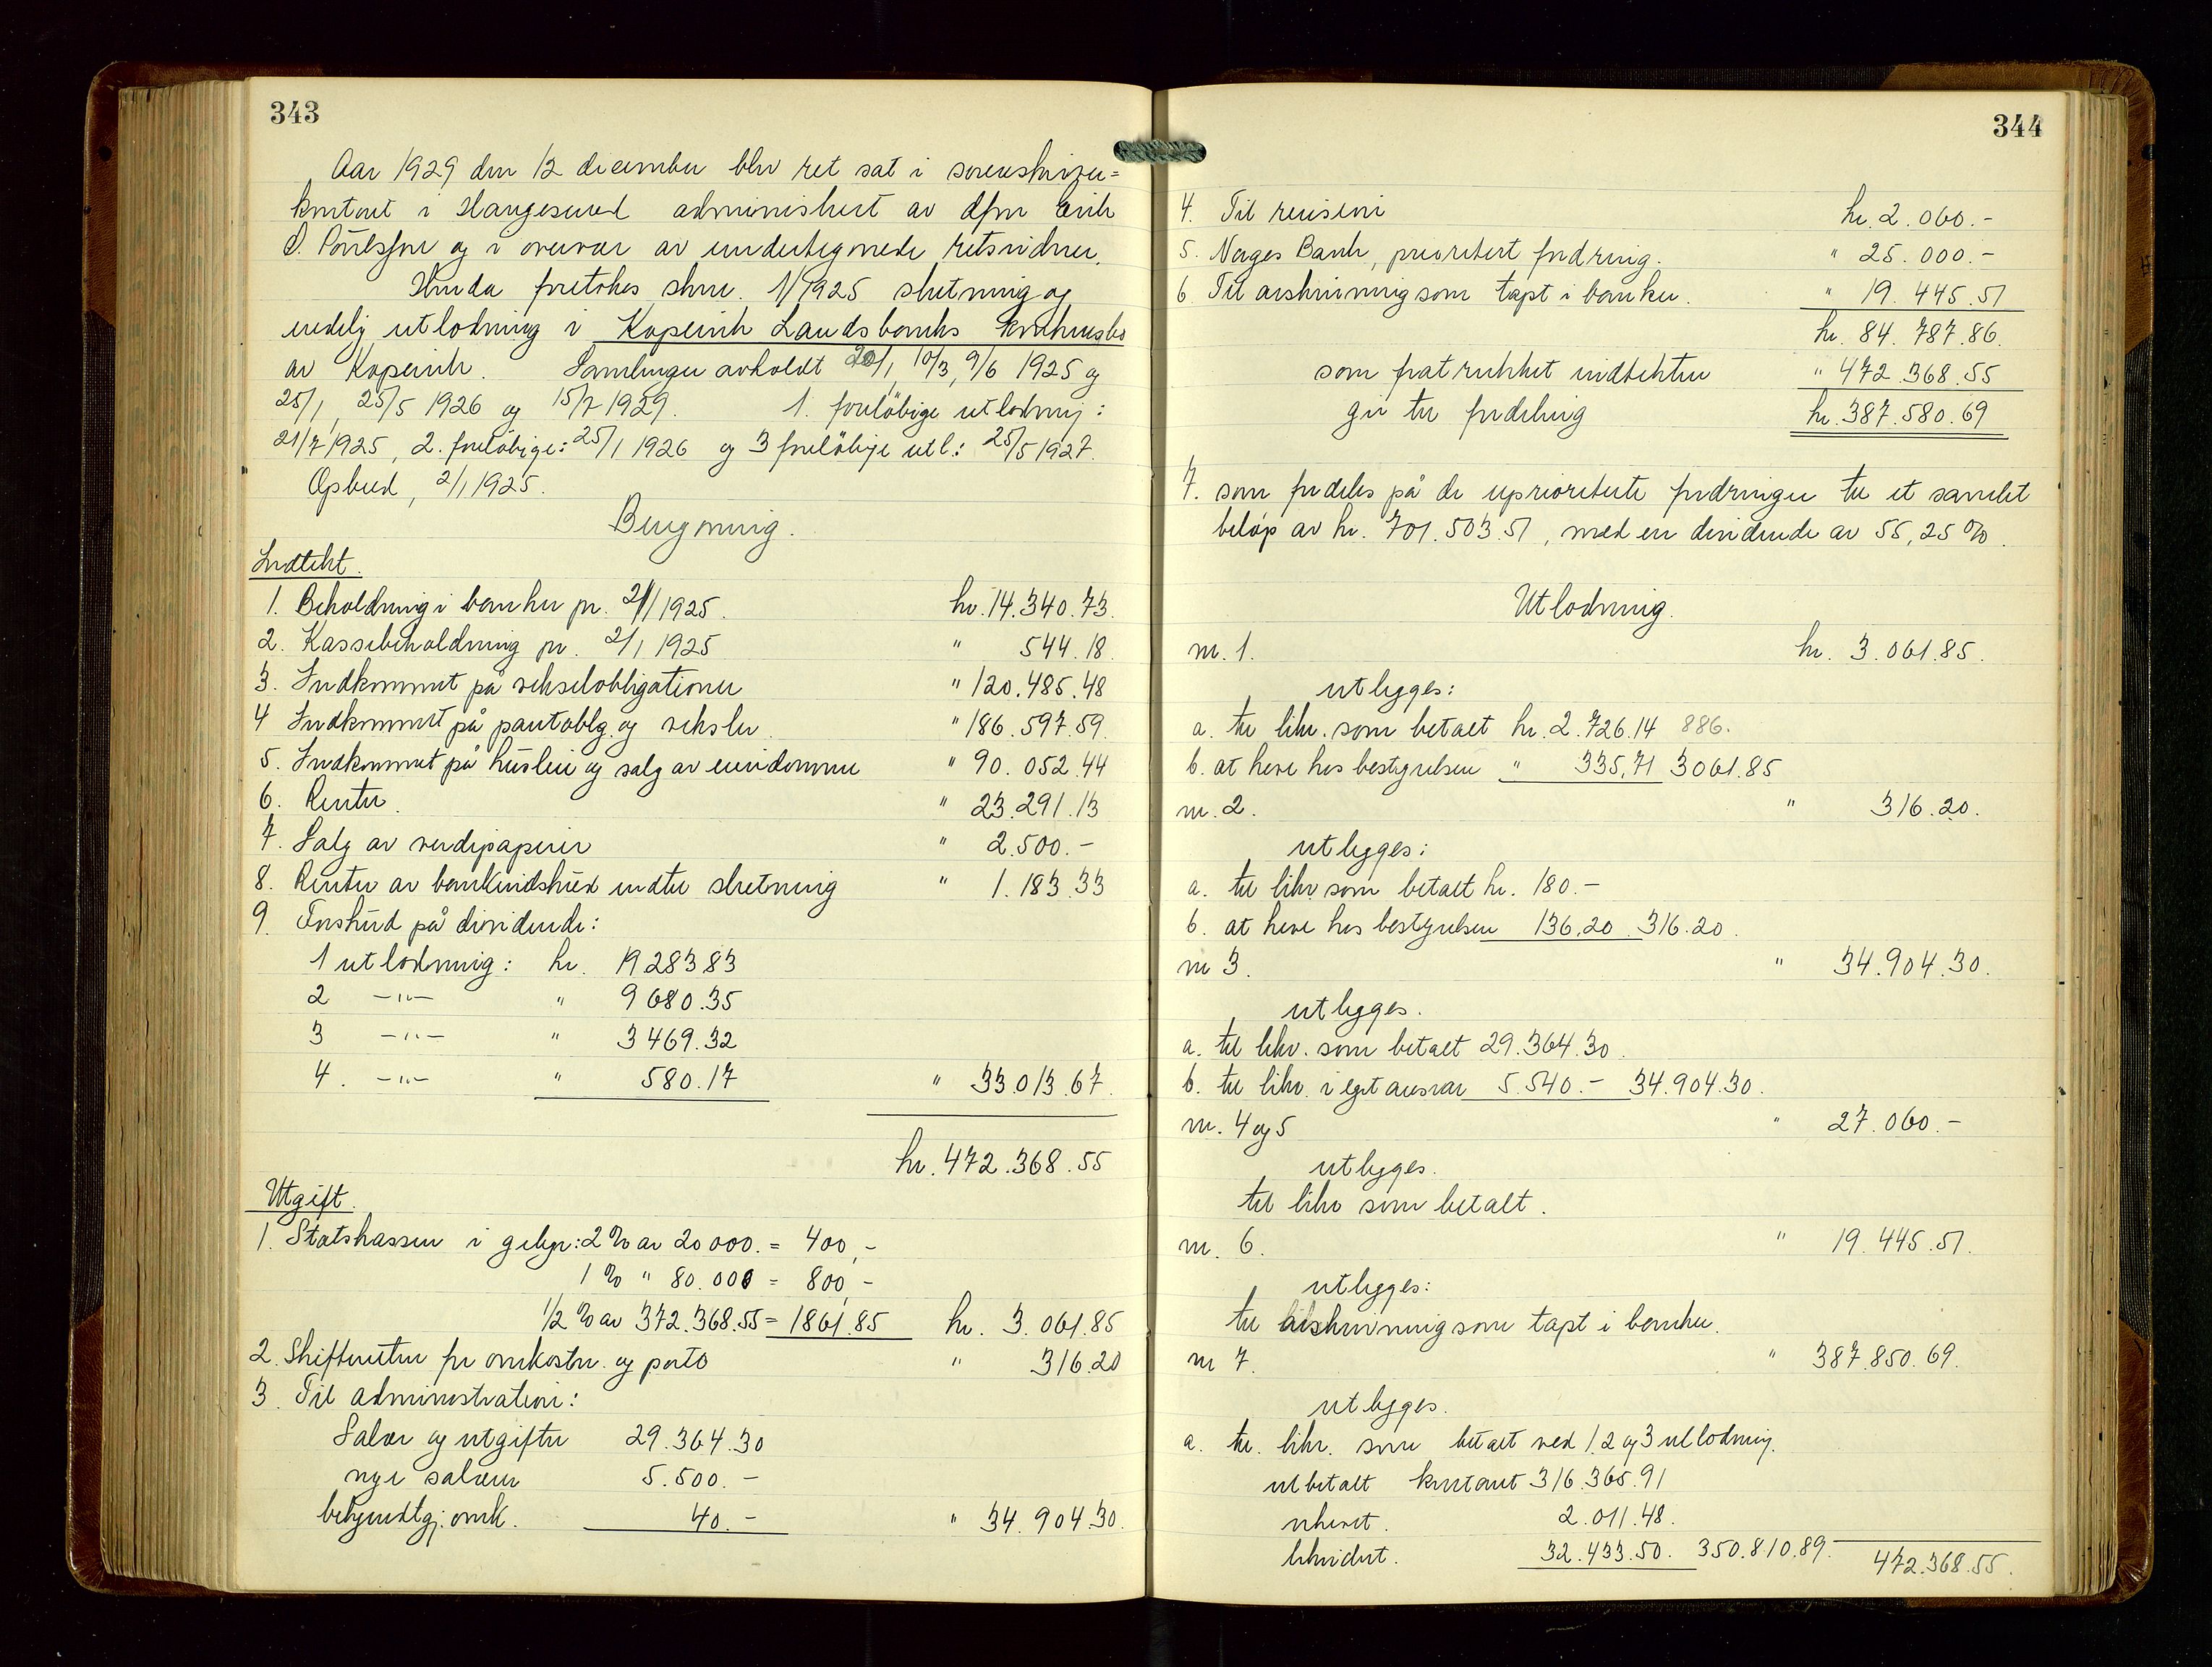 343
Aar 1929 den 12 december blev ret sat i sorenskriver=
kontoret i Haugesund administrert av dfm Erik
O. Poulsson og i overvær av undertegnede retsvidner.
Hvorda foretokes skm. 1/1925 slutning og
endelig utlodning i Kopervik Landsbanks konkursbo
av Kopervik. Samlinger avholdt 20/1, 10/3, 9/6 1925 og
25/1, 25/5 1926 og 15/7 1929. 1. foreløbige utlodning:
21/7 1925, 2. foreløbige: 25/1 1926 og 3 foreløbige utl.: 25/5 1927.
Opbud, 2/1 1925.
Beregning.
Indtekt.
1. Beholdning i banker pr. 2/1 1925. kr. 14.340.73.
2. Kassebeholdning pr. 2/1 1925 " 544.18.
3. Indkommet på vekselobligationer " 120.485.48
4 Indkommet på pantoblg. og veksler. " 186.597.59.
5. Indkommet på husleie og salg av eiendomme " 90.052.44
6. Renter. " 23.291.13
7. Salg av verdipapirer " 2.500.-
8. Renter av bankindskud indtil slutning " 1.183.33
9. Forskud på dividende:
1 utlodning: kr. 19 283 83
2 -"- " 9 680.35
3 -"- " 3 469.32
4. -"- " 580.17 " 33.013.67.
kr. 472.368.55
Utgift.
1. Statskassen i gebyr: 2 % av 20 000. = 400,-
1 % " 80.000 = 800,-
1/2 % av 372.368.55 = 1861.85 kr. 3.061.85
2. Skifteretten for omkostn. og porto " 316.20
3. Til administration:
Salær og utgifter 29.364.30
nye salærer 5.500.-
bekjendtgj. omk. 40.- " 34.904.30.
344
4. Til revision kr. 2.060.-
5. Norges Bank, prioritert fordring. " 25.000.-
6. Til avskrivning som tapt i banker. " 19.445.51
kr. 84.787.86.
som fratrukket indtekten " 472.368.55
gir til fordeling kr. 387.580.69
7. som fordeles på de uprioriterte fordringer til et samlet
beløp av kr. 701.503.51, med en dividende av 55,25 %.
Utlodning.
nr. 1. kr. 3.061.85.
utlegges:
a. til likv. som betalt kr. 2.726.14 886.
b. at heve hos bestyrelsen " 335,71 3061.85
nr. 2. " 316.20.
utlegges:
a. til likv. som betalt kr. 180.-
b. at heve hos bestyrelsen 136,20 316.20.
nr 3. " 34.904.30.
utlegges.
a. til likv. som betalt 29.364.30.
b. til likv. i eget ansvar 5.540.- 34.904.30.
nr. 4 og 5 " 27.060.-
utlegges.
til likv som betalt.
nr. 6. " 19.445.51.
utlegges:
til avskrivning som tapt i banker.
nr 7. " 387.850.69.
utlegges.
a. til. likv. som betalt ved 1. 2 og 3 utlodning.
utbetalt kontant 316.365.91
uhevet. 2.011.48.
likvidert. 32.433.50. 350.810.89. 472.368.55.